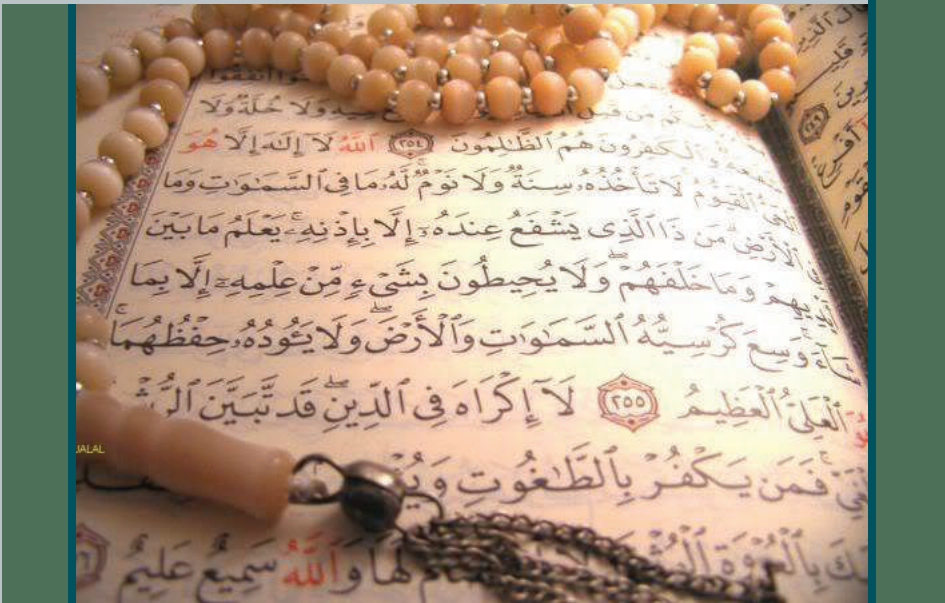 خُلَّةٌ وَلَا
وَٱلْكَٰفِرُونَ هُمُ ٱلظَّٰلِمُونَ ٢٥٤ ٱللَّهُ لَآ إِلَٰهَ إِلَّا هُوَ
ٱلْحَىُّ ٱلْقَيُّومُ لَا تَأْخُذُهُۥ سِنَةٌ وَلَا نَوْمٌ لَّهُۥ مَا فِى ٱلسَّمَٰوَٰتِ وَمَا
فِى ٱلْأَرْضِ مَن ذَا ٱلَّذِى يَشْفَعُ عِندَهُۥٓ إِلَّا بِإِذْنِهِۦ يَعْلَمُ مَا بَيْنَ
أَيْدِيهِمْ وَمَا خَلْفَهُمْ وَلَا يُحِيطُونَ بِشَىْءٍ مِّنْ عِلْمِهِۦٓ إِلَّا بِمَا
شَآءَ وَسِعَ كُرْسِيُّهُ ٱلسَّمَٰوَٰتِ وَٱلْأَرْضَ وَلَا يَـُٔودُهُۥ حِفْظُهُمَا
ٱلْعَلِىُّ ٱلْعَظِيمُ ٢٥٥ لَآ إِكْرَاهَ فِى ٱلدِّينِ قَد تَّبَيَّنَ
فَمَن يَكْفُرْ بِٱلطَّٰغُوتِ
بِٱلْعُرْوَةِ لَهَا وَٱللَّهُ سَمِيعٌ عَلِيمٌ
JALAL